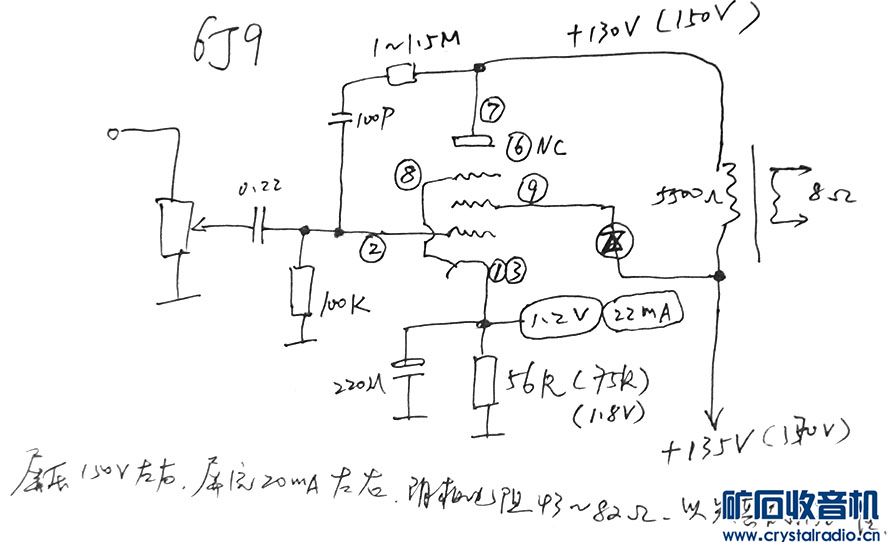 6J9
1~1.5M
+130V (150V)
100P
⑦
⑥ NC
⑧
⑨
0.22
②
5500Ω
8Ω
①③
100K
1.2V
22mA
220μ
56R (75R)
(1.8V)
+135V (150V)
屏压150V左右. 屏流20mA左右. 阴极电阻43~82Ω.
矿石收音机
www.crystalradio.cn